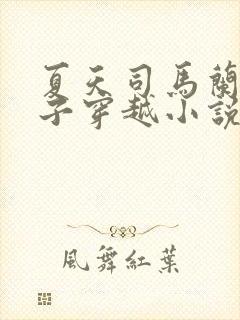 夏天司馬蘭
子穿越小說
風舞紅葉